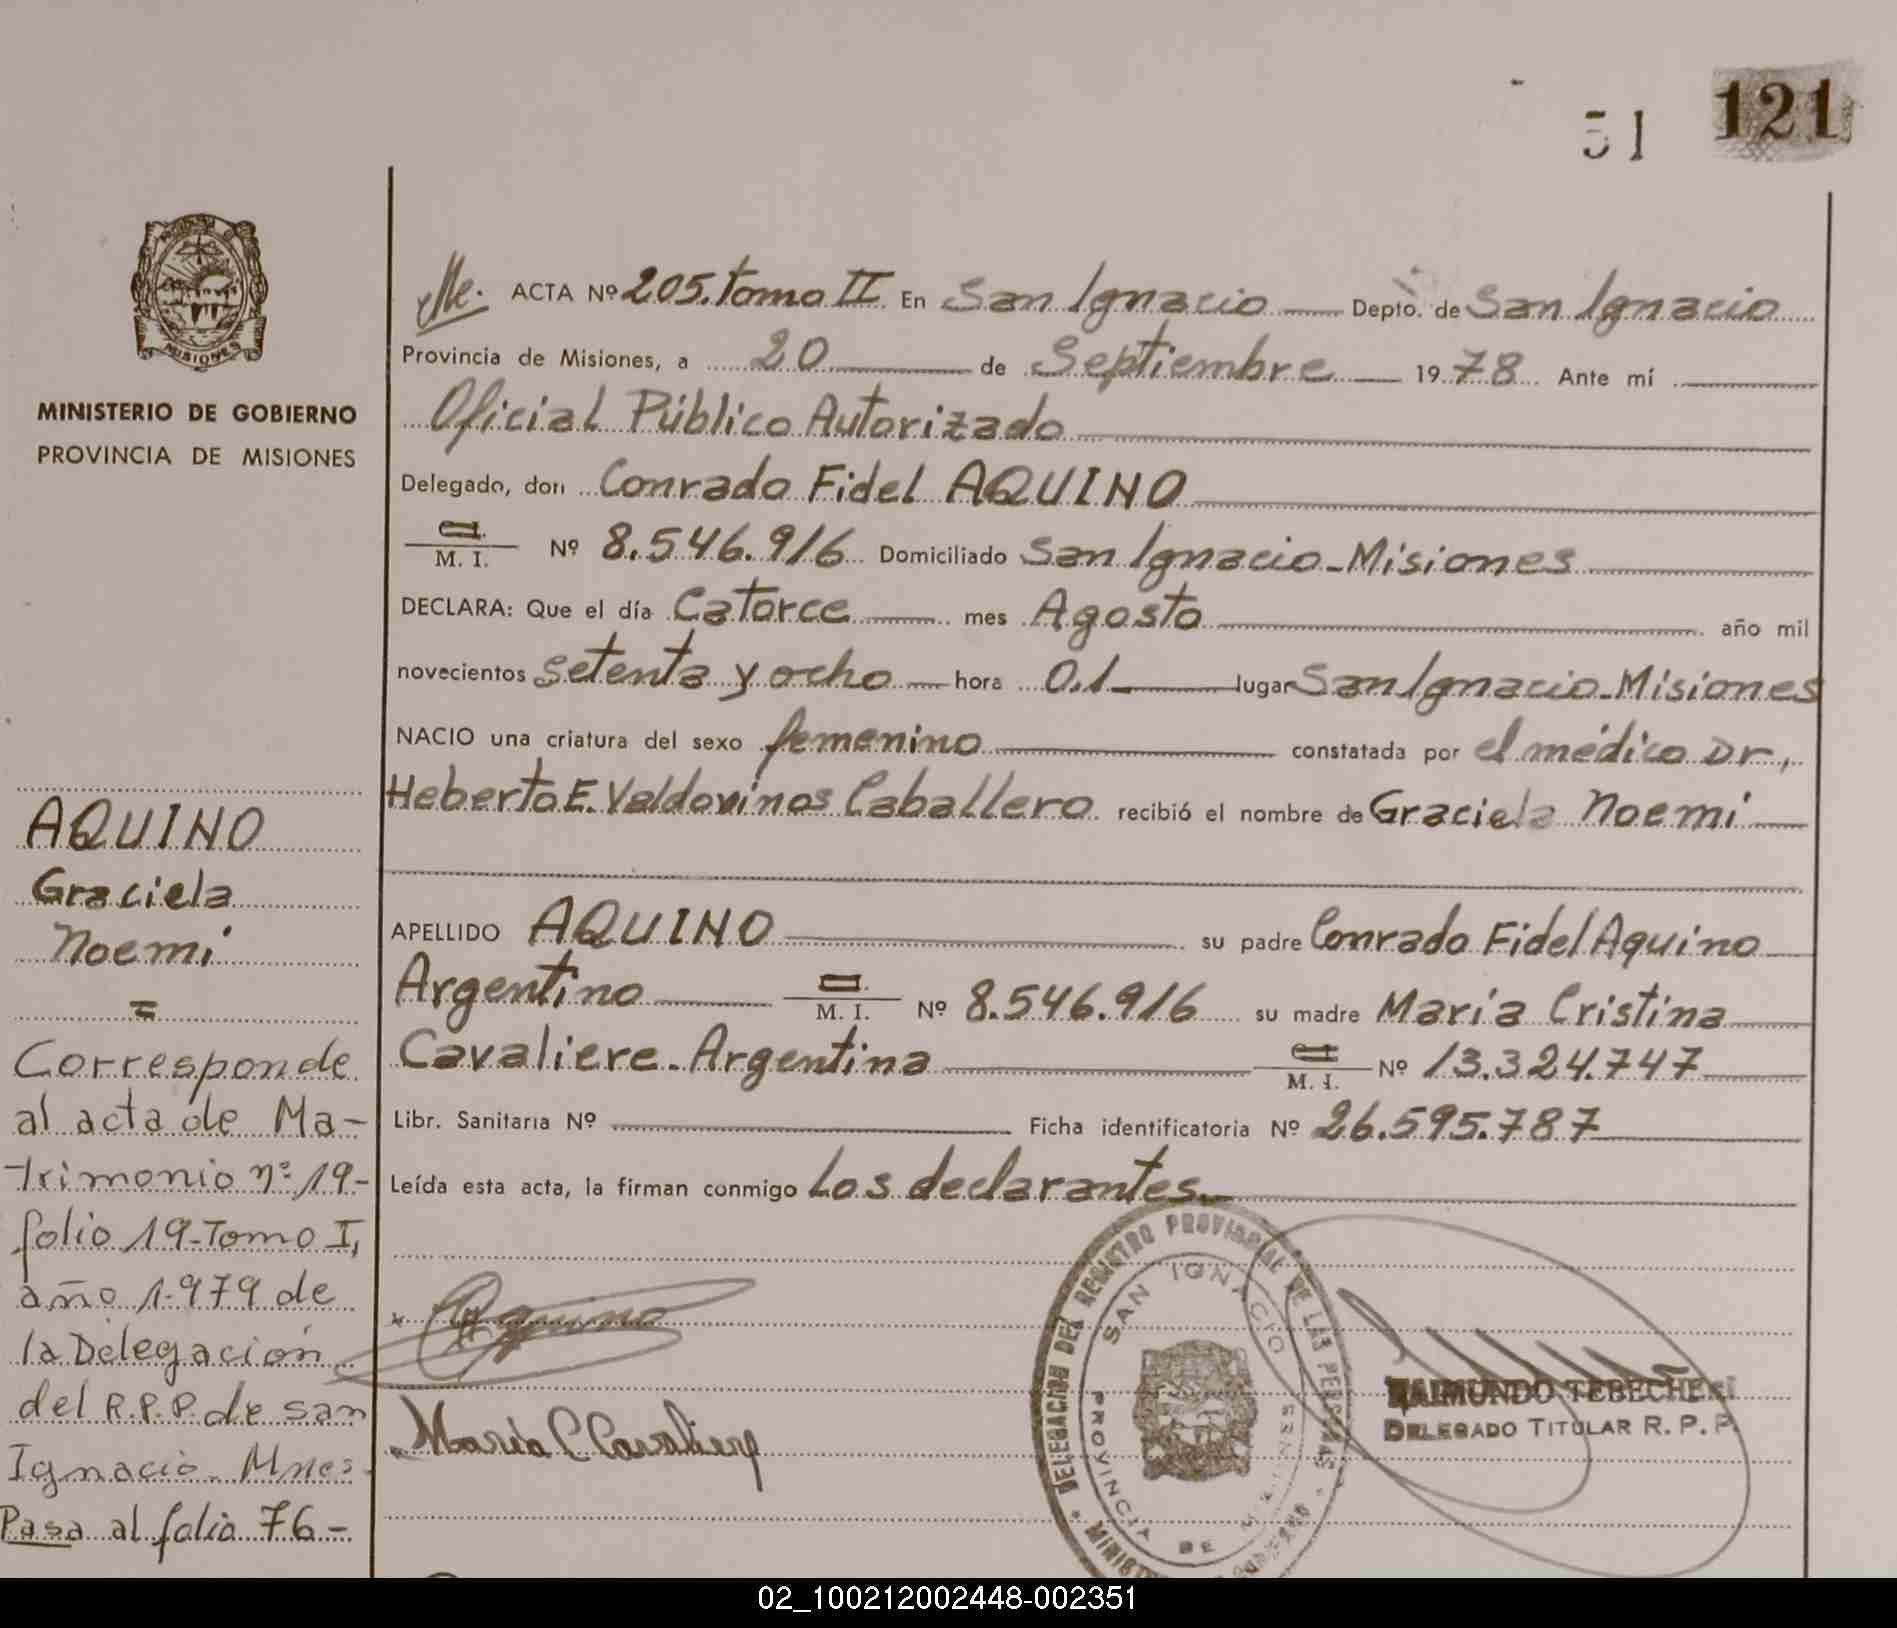 51 121
MISIONES
MINISTERIO DE GOBIERNO
PROVINCIA DE MISIONES
ACTA Nº 205. Tomo II En San Ignacio Depto. de San Ignacio
Provincia de Misiones, a 20 de Septiembre 1978 Ante mí
Oficial Público Autorizado
Delegado, don Conrado Fidel AQUINO
M. I. Nº 8.546.916 Domiciliado San Ignacio-Misiones
DECLARA: Que el día Catorce mes Agosto año mil
novecientos setenta y ocho hora 0.1 lugar San Ignacio-Misiones
NACIO una criatura del sexo femenino constatada por el médico Dr,
Heberto E. Valdovinos Caballero recibió el nombre de Graciela Noemi
APELLIDO AQUINO su padre Conrado Fidel Aquino
Argentino M. I. Nº 8.546.916 su madre María Cristina
Cavaliere-Argentina M. I. Nº 13.324.747
Libr. Sanitaria Nº Ficha identificatoria Nº 26.595.787
Leída esta acta, la firman conmigo Los declarantes.-
AQUINO
Graciela
Noemi
=
Corresponde
al acta de Ma-
trimonio nº 19-
folio 19-Tomo I,
año 1.979 de
la Delegación
del R.P.P. de San
Ignacio-Mnes-
Pasa al folio 76-
x Aquino
Maria C Cavaliere
DELEGACION DEL REGISTRO PROVINCIAL DE LAS PERSONAS
SAN IGNACIO
PROVINCIA DE MISIONES
RAIMUNDO TEBECHERI
DELEGADO TITULAR R. P. P.
02_100212002448-002351